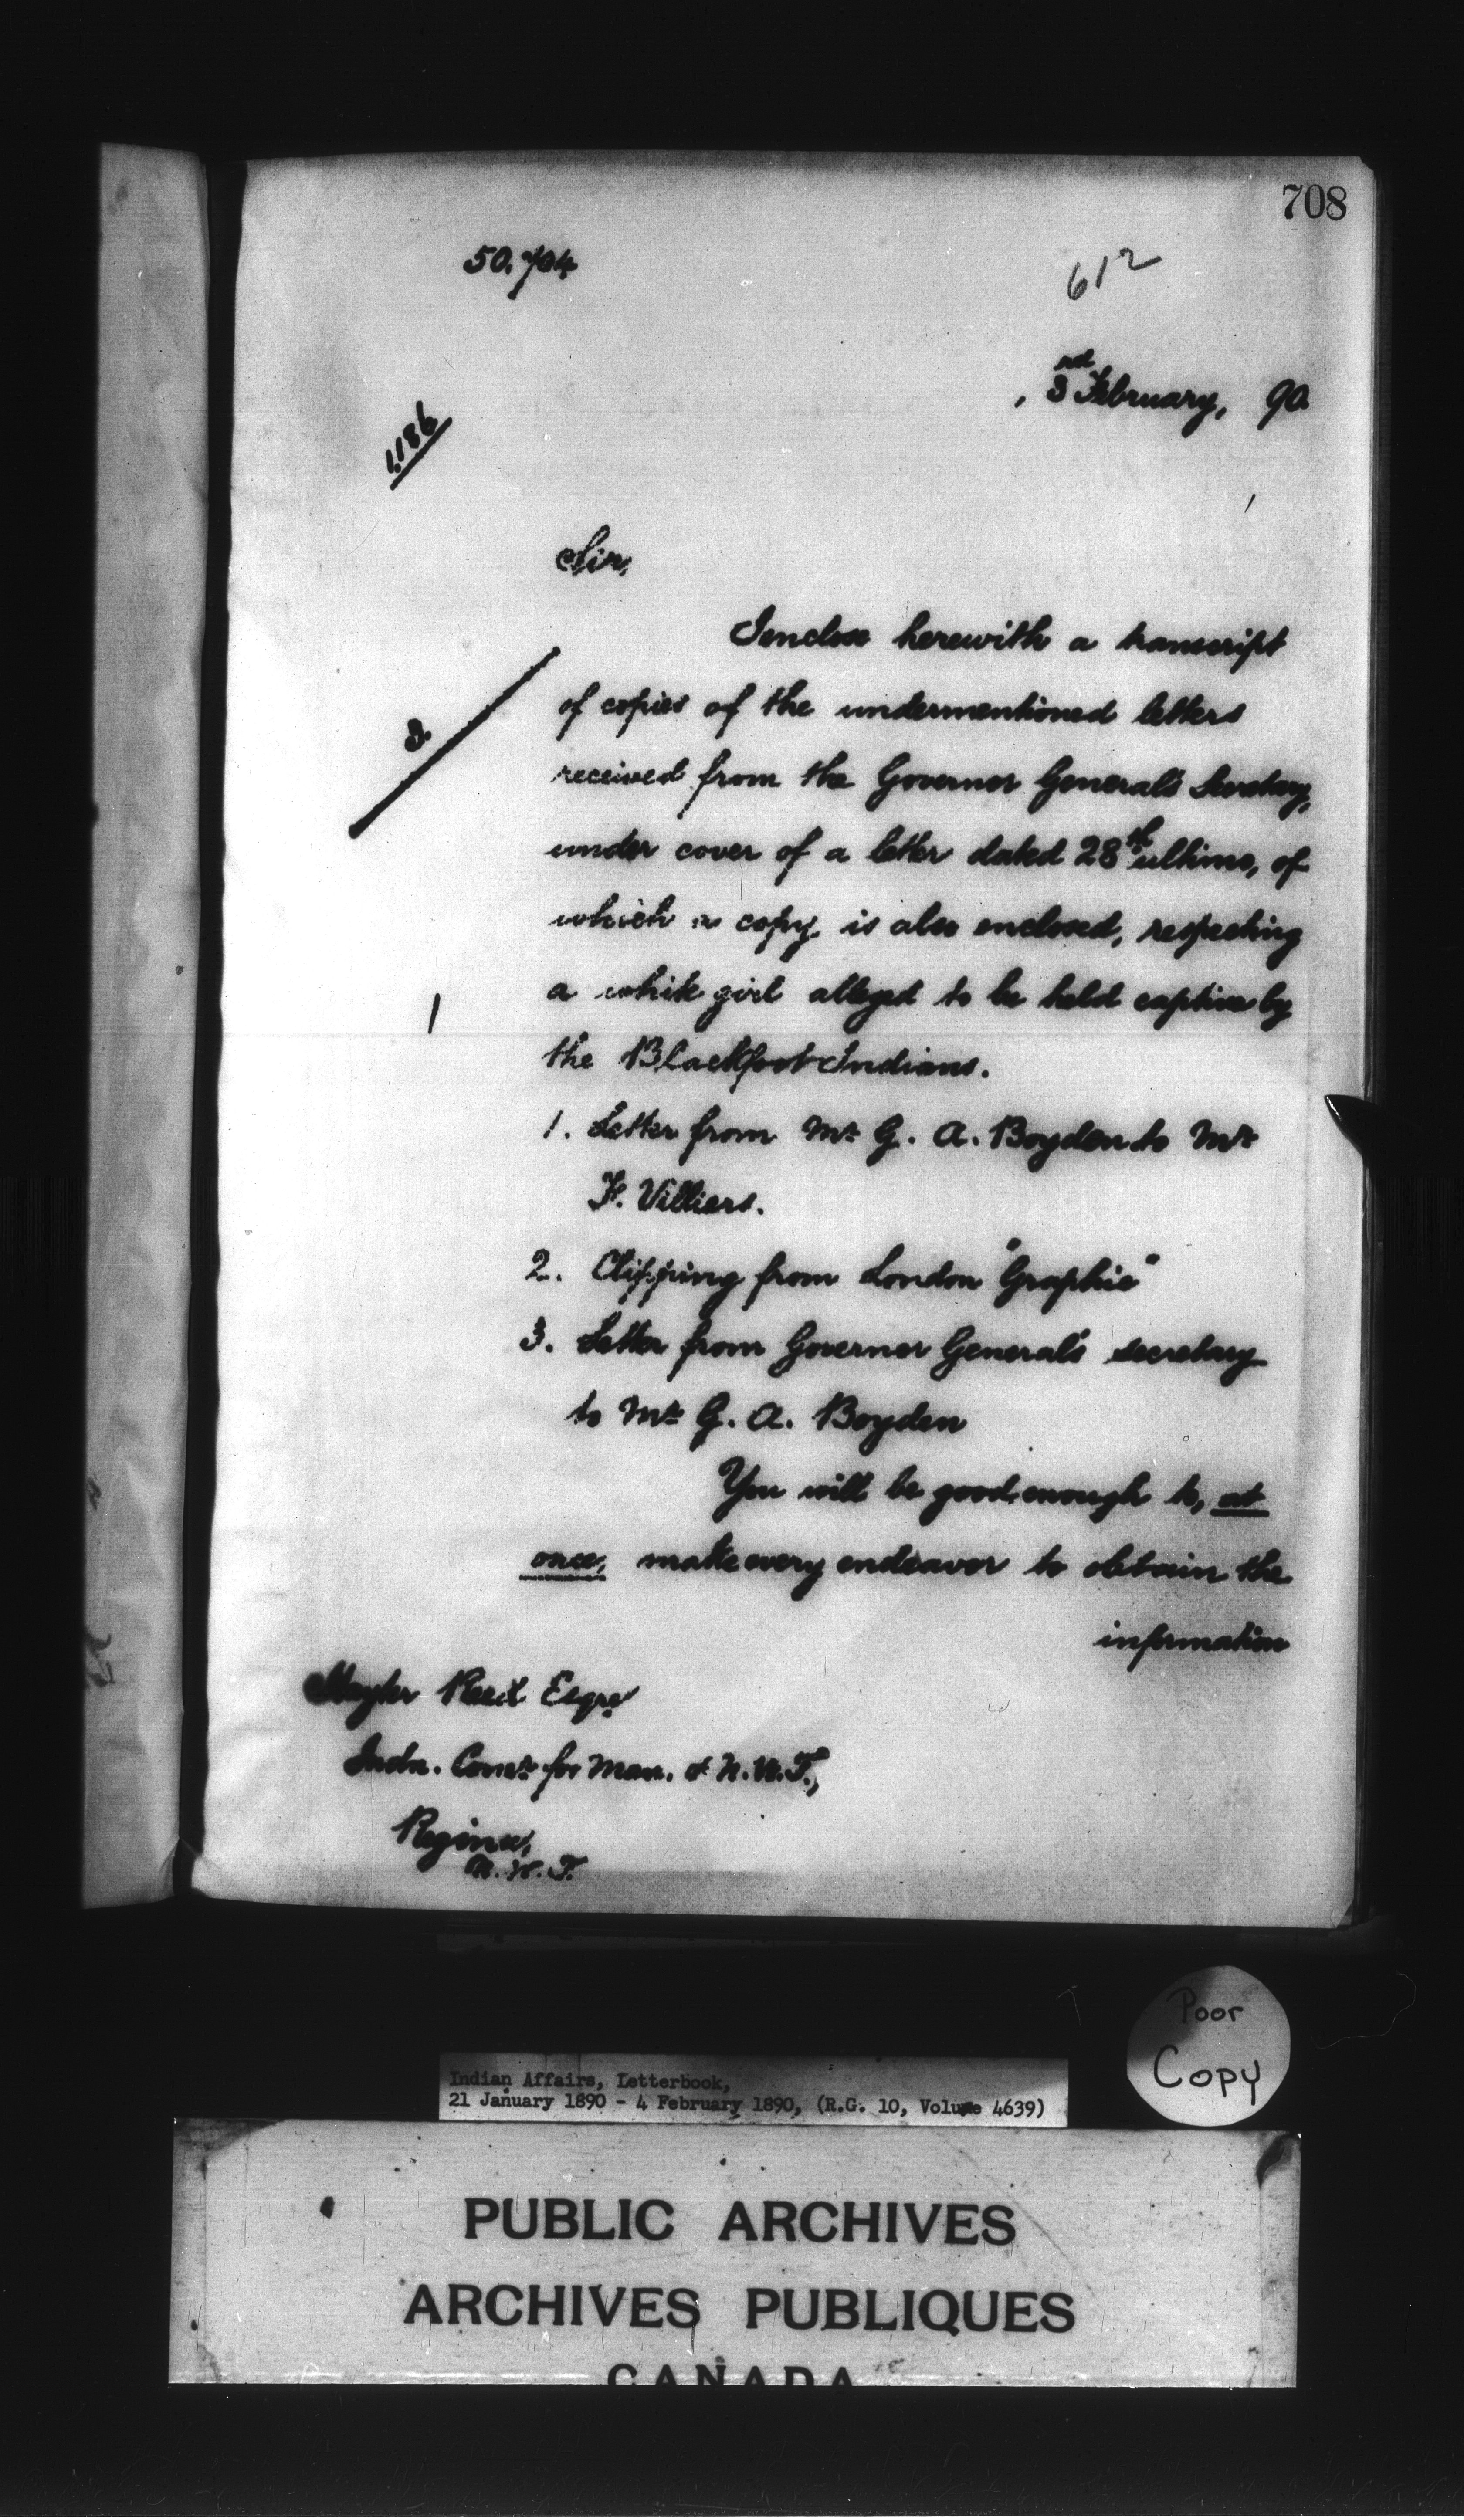 708
50.704
612
, 3rd February, 90
1,186
Sir,
I enclose herewith a transcript
of copies of the undermentioned letters
received from the Governor General's Secretary,
under cover of a letter dated 28th ultimo, of
which a copy is also enclosed, respecting
a white girl alleged to be held captive by
the Blackfoot Indians.
1. Letter from Mr G. A. Boyden to Mr
F. Villiers.
2. Clipping from London "Graphic"
3. Letter from Governor General's secretary
to Mr G. A. Boyden
You will be good enough to, at
once, make every endeavor to obtain the
information
Hayter Reed Esqre
Indn. Comr for Man. & N.W.T.,
Regina,
N.W.T.
Poor
Copy
Indian Affairs, Letterbook,
21 January 1890 - 4 February 1890, (R.G. 10, Volume 4639)
PUBLIC ARCHIVES
ARCHIVES PUBLIQUES
CANADA